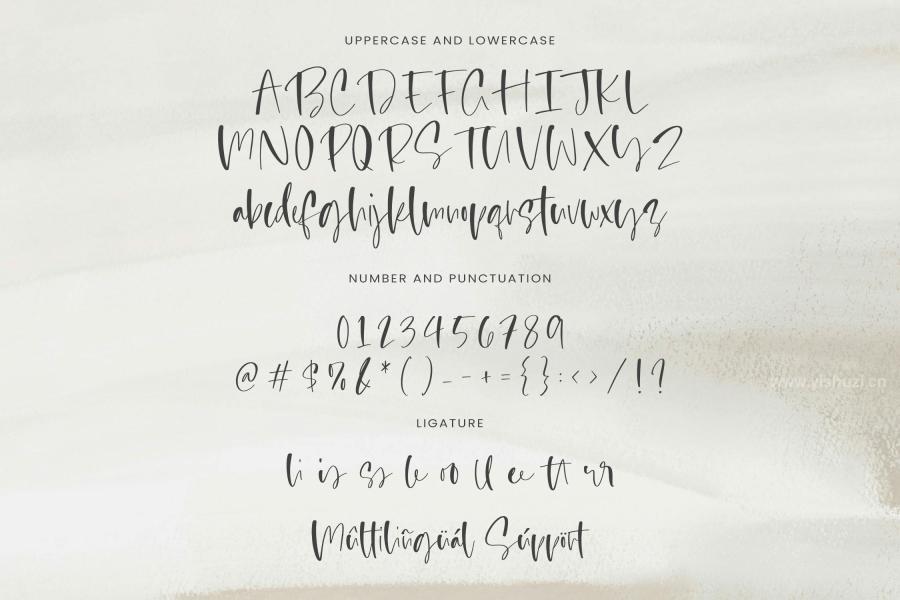 UPPERCASE AND LOWERCASE
ABCDEFGHIJKL
MNOPQRSTUVWXYZ
abcdefghijklmnopqrstuvwxyz
NUMBER AND PUNCTUATION
0123456789
@ # $ % & * ( ) _ - + = { } : < > / ! ?
www.yishuzi.cn
LIGATURE
li is ss le oo ll ee tt rr
Múltilingüál Súppört